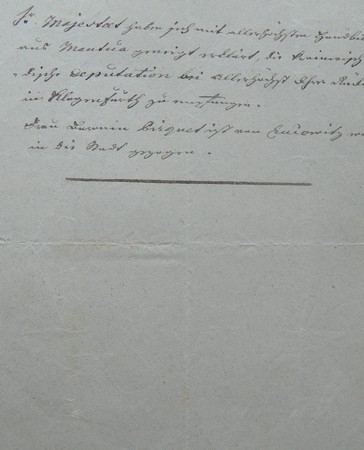 Sr. Majestät haben sich mit allerhöchsten
aus Mantua geneigt erklärt, die
dische Deputation bei Allerhöchst Ihrer
in Klagenfurth zu empfangen.
Frau Baronin ist von
in die Stadt gezogen.